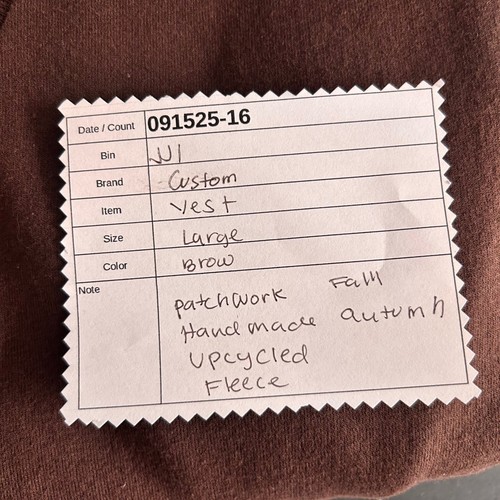 Date / Count 091525-16
Bin JJ1
Brand Custom
Item Vest
Size Large
Color Brow
Note
patchwork Fall
Handmade autumn
Upcycled
Fleece